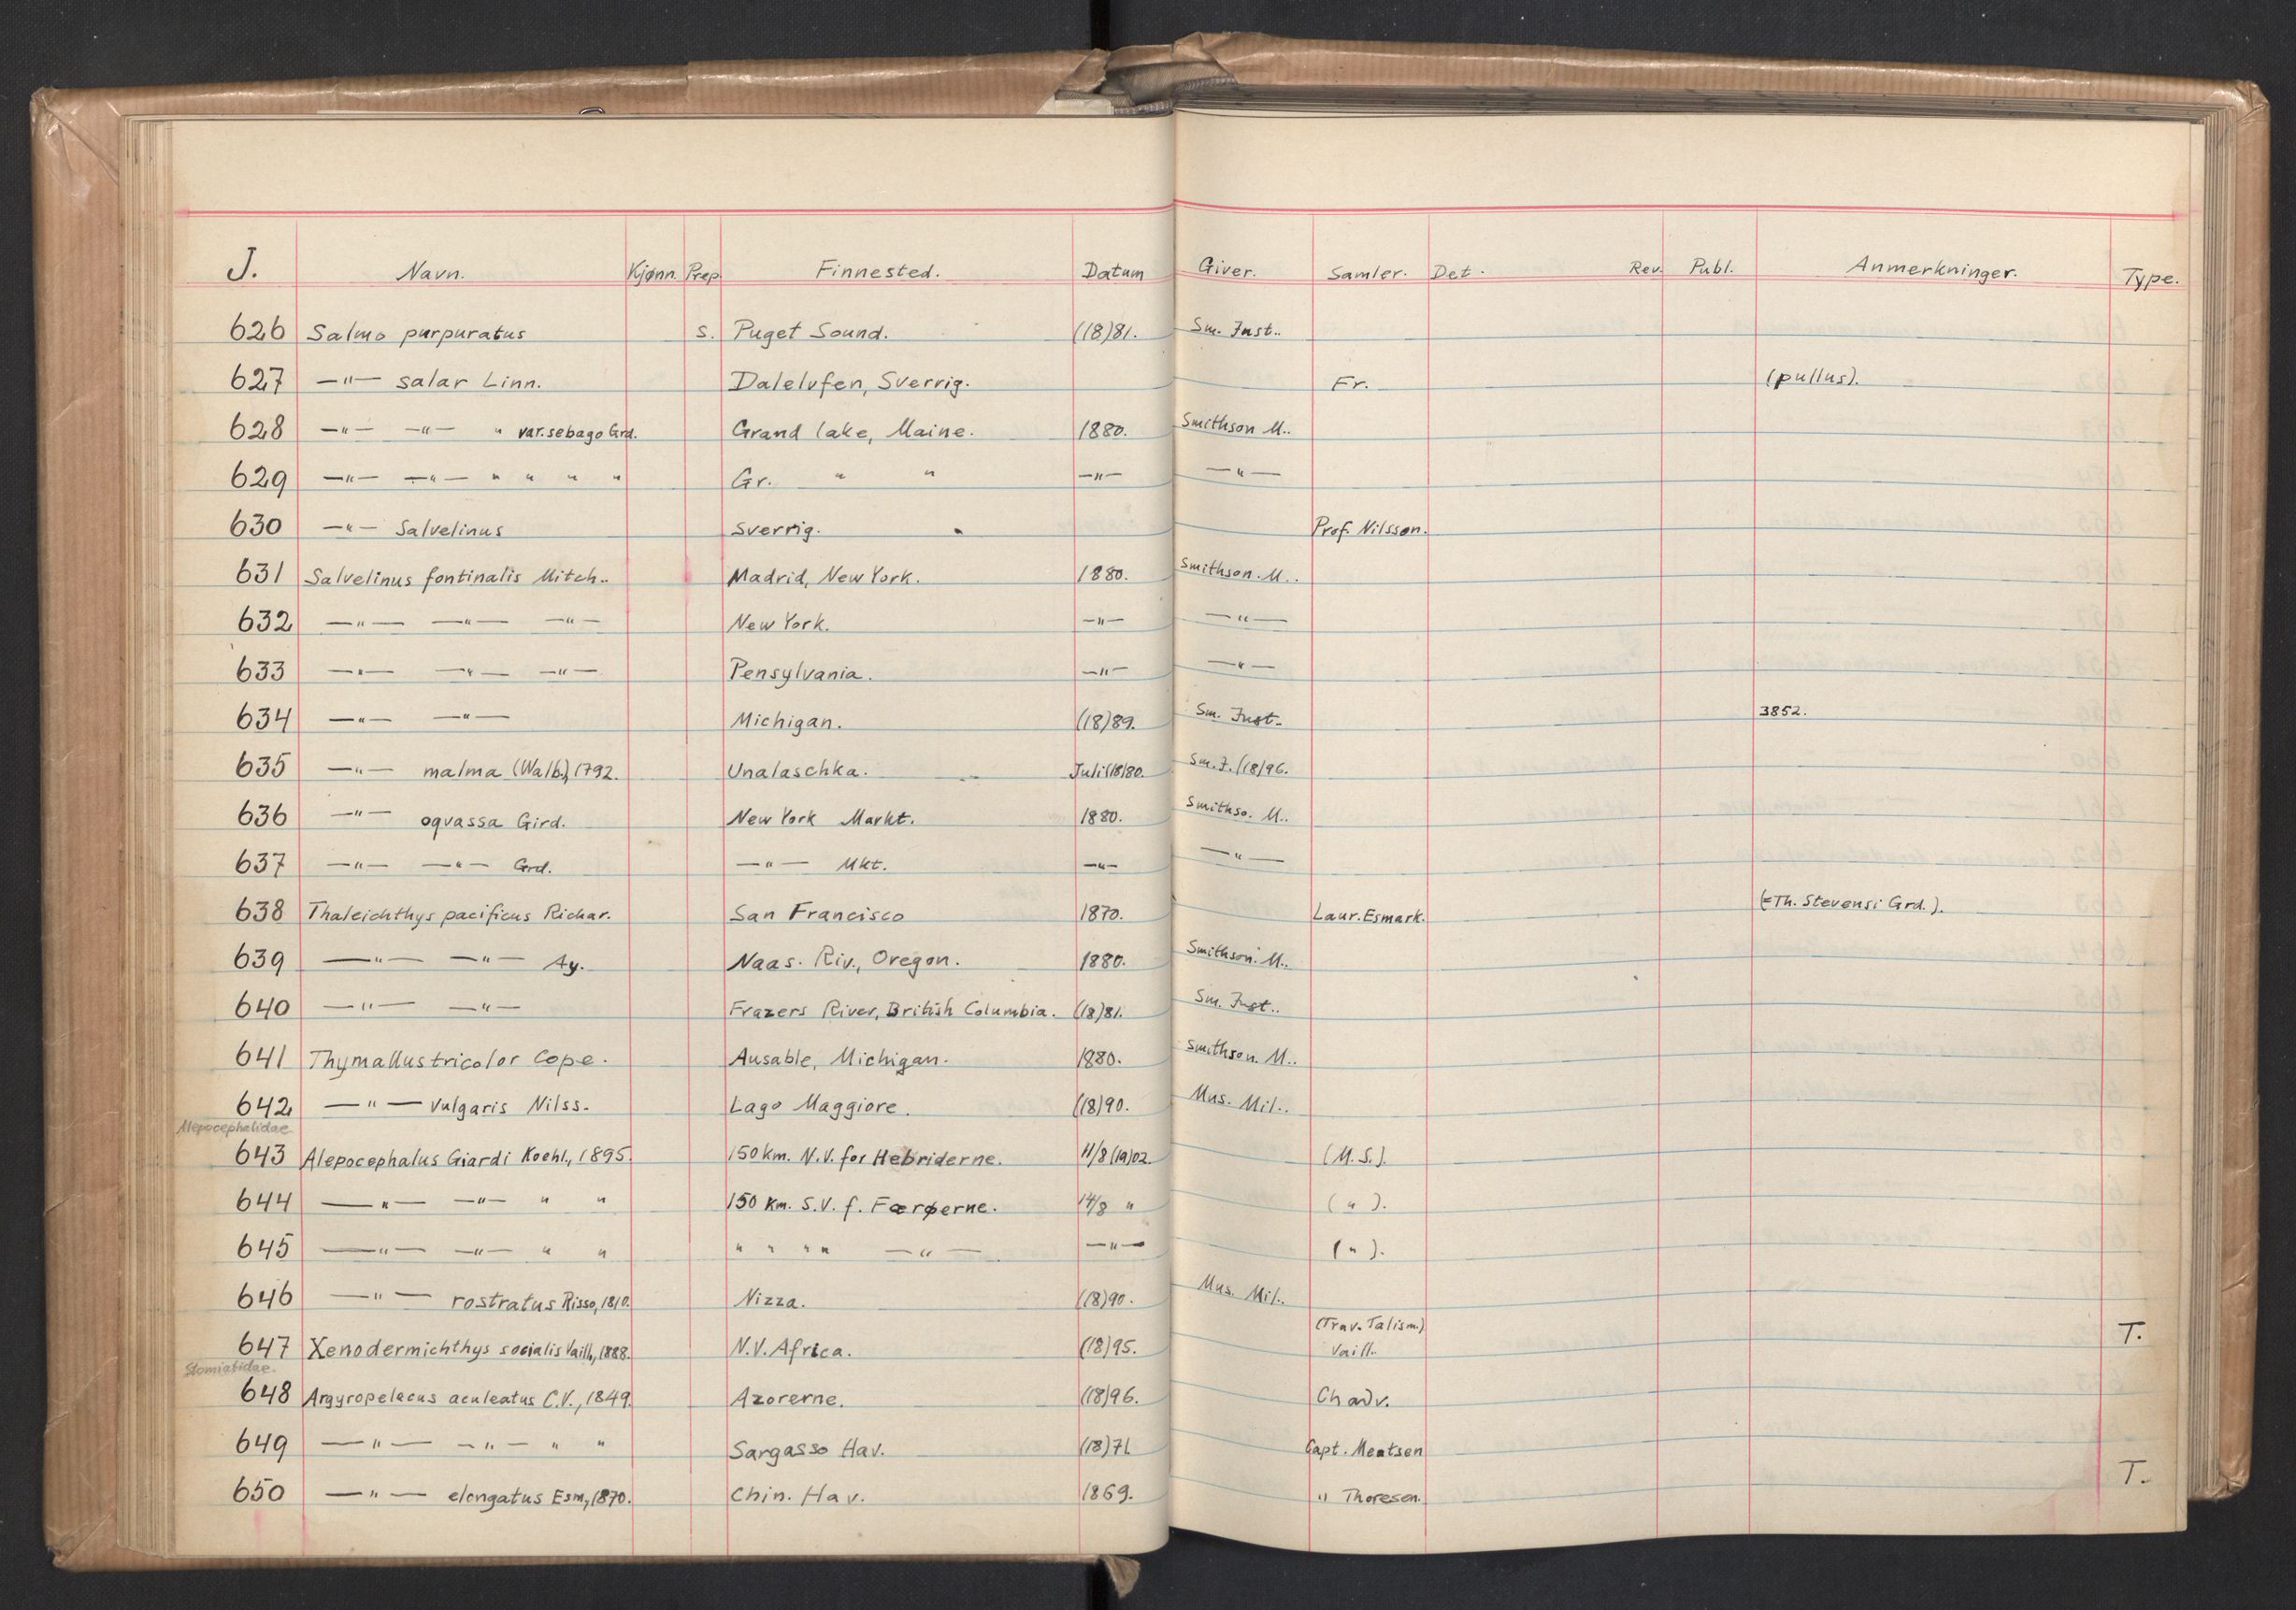 J. Navn. Kjønn. Prep. Finnested. Datum Giver. Samler. Det. Rev. Publ. Anmerkninger. Type.
626 Salmo purpuratus s. Puget Sound. (18)81. Sm. Inst..
627 —"— salar Linn. Dalelvfen, Sverrig. Fr. (pullus).
628 —"— —"— " var. sebago Grd. Grand lake, Maine. 1880. Smithson M..
629 —"— —"— " " " " Gr. " " —"— —"—
630 —"— Salvelinus Sverrig. Prof. Nilsson.
631 Salvelinus fontinalis Mitch.. Madrid, New York. 1880. Smithson. M..
632 —"— —"— —"— New York. —"— —"—
633 —"— —"— —"— Pensylvania. —"— —"—
634 —"— —"— Michigan. (18)89. Sm. Inst. 3852.
635 —"— malma (Walb.), 1792. Unalaschka. Juli (18)80. Sm. I. (18)96.
636 —"— oqvassa Gird. New York Markt. 1880. Smithso. M..
637 —"— —"— Grd. —"— Mkt. —"— —"—
638 Thaleichthys pacificus Richar. San Francisco 1870. Laur. Esmark. (=Th. Stevensi Grd.).
639 —"— —"— Ay. Naas. Riv., Oregon. 1880. Smithson. M..
640 —"— —"— Frazers River, British Columbia. (18)81. Sm. Inst..
641 Thymallus tricolor Cope. Ausable, Michigan. 1880. Smithson. M..
642 —"— vulgaris Nilss. Lago Maggiore. (18)90. Mus. Mil..
Alepocephalidae
643 Alepocephalus Giardi Koehl., 1895. 150 km. N.V. for Hebriderne. 11/8 (19)02. (M.S.).
644 —"— —"— " " 150 km. S.V. f. Færøerne. 14/8 " ( " ).
645 —"— —"— " " " " " " —"— —"— ( " ).
646 —"— rostratus Risso, 1810. Nizza. (18)90. Mus. Mil..
647 Xenodermichthys socialis Vaill., 1888. N.V. Africa. (18)95. (Trav. Talism.) Vaill. T.
Stomiatidae.
648 Argyropelecus aculeatus C.V., 1849. Azorerne. (18)96. Chadv.
649 —"— —"— " " Sargasso Hav. (18)71 Capt. Mentsen
650 —"— elongatus Esm., 1870. Chin. Hav. 1869. " Thoresen. T.